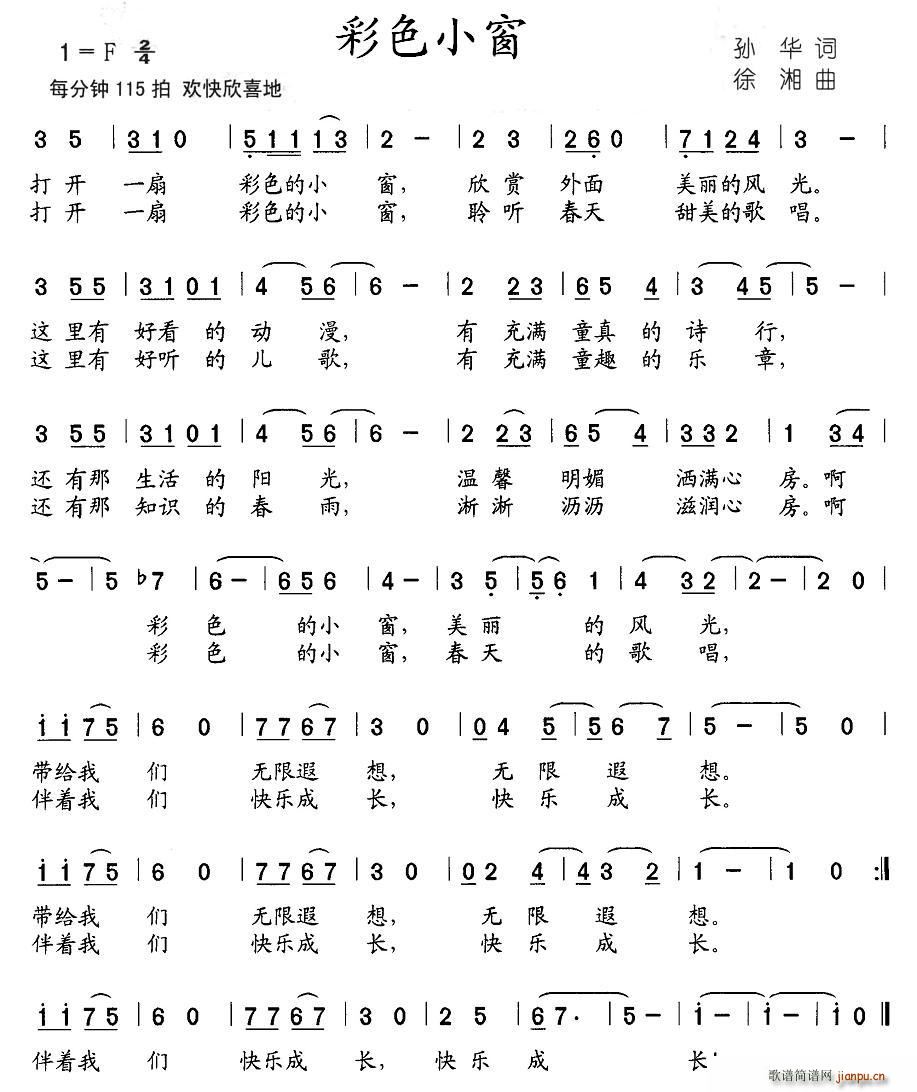 彩色小窗
1=F 2/4
孙 华 词
每分钟 115 拍 欢快欣喜地
徐 湘 曲
3 5 | 3 1 0 | 5 1 1 1 3 | 2 - | 2 3 | 2 6 0 | 7 1 2 4 | 3 - |
打 开 一扇 彩色的小 窗, 欣 赏 外面 美丽的风 光。
打 开 一扇 彩色的小 窗, 聆 听 春天 甜美的歌 唱。
3 5 5 | 3 1 0 1 | 4 5 6 | 6 - | 2 2 3 | 6 5 4 | 3 4 5 | 5 - |
这 里有 好看 的 动 漫, 有 充满 童真 的 诗 行,
这 里有 好听 的 儿 歌, 有 充满 童趣 的 乐 章,
3 5 5 | 3 1 0 1 | 4 5 6 | 6 - | 2 2 3 | 6 5 4 | 3 3 2 | 1 3 4 |
还 有那 生活 的 阳 光, 温 馨 明媚 洒满心 房。啊
还 有那 知识 的 春 雨, 淅 淅 沥沥 滋润心 房。啊
5 - | 5 ♭7 | 6 - | 6 5 6 | 4 - | 3 5 | 5 6 1 | 4 3 2 | 2 - | 2 0 |
彩 色 的小 窗, 美 丽 的 风 光,
彩 色 的小 窗, 春 天 的 歌 唱,
i i 7 5 | 6 0 | 7 7 6 7 | 3 0 | 0 4 5 | 5 6 7 | 5 - | 5 0 |
带给我 们 无限遐 想, 无 限 遐 想。
伴着我 们 快乐成 长, 快 乐 成 长。
i i 7 5 | 6 0 | 7 7 6 7 | 3 0 | 0 2 4 | 4 3 2 | 1 - | 1 0 :||
带给我 们 无限遐 想, 无 限 遐 想。
伴着我 们 快乐成 长, 快 乐 成 长。
i i 7 5 | 6 0 | 7 7 6 7 | 3 0 | 2 5 | 6 7. | 5 - | i - | i - | i 0 ||
伴着我 们 快乐成 长, 快 乐 成 长
歌谱简谱网
jianpu.cn